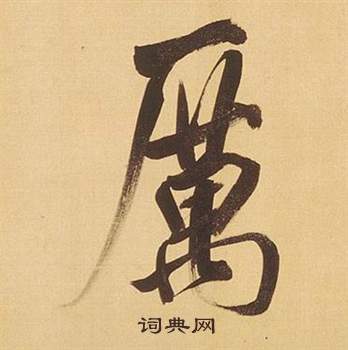 厲
词典网